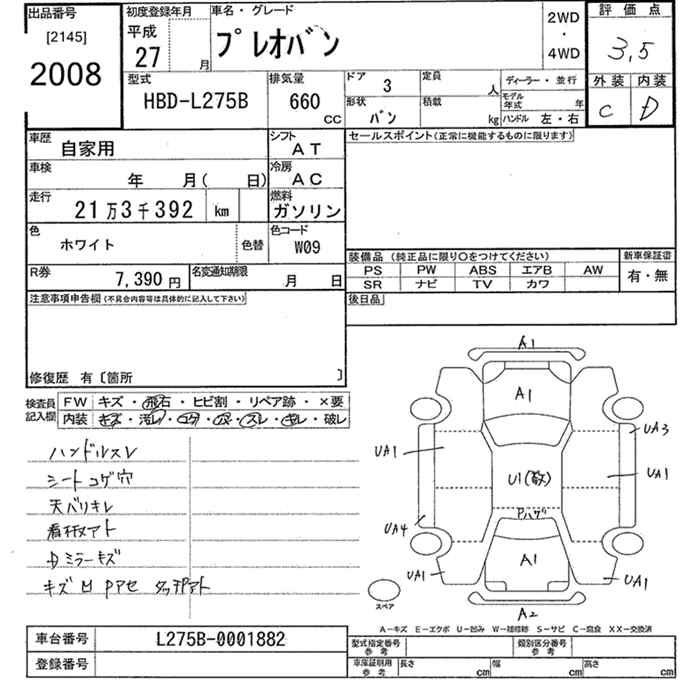 出品番号
[2145]
2008
初度登録年月
平成
27 月
車名・グレード
プレオバン
2WD
・
4WD
評価点
3,5
外装 内装
C D
型式
HBD-L275B
排気量
660
CC
ドア 3
形状
バン
定員
人
積載
kg
ディーラー・並行
モデル年式 年
ハンドル 左・右
車歴
自家用
シフト
AT
車検
年 月( 日)
冷房
AC
走行
21万3千392 km
燃料
ガソリン
色
ホワイト
色替
色コード
W09
R券
7,390円
名変通知期限
月 日
セールスポイント(正常に機能するものに限ります)
装備品(純正品に限り○をつけてください)
PS PW ABS エアB AW
SR ナビ TV カワ
新車保証書
有・無
後日品
注意事項申告欄(不具合内容等は具体的に記入して下さい)
修復歴 有〔箇所 〕
検査員
記入欄
FW キズ・飛石・ヒビ割・リペア跡・×要
内装 キズ・汚レ・コゲ・穴・スレ・キレ・破レ
ハンドルスレ
シートコゲ穴
天バリキレ
看板アト
Dミラーキズ
キズ凹 Pアセ タッチアト
A1
A1
UA3
UA1
U1(数)
UA1
Pハゲ
UA4
A1
UA1
UA1
A2
スペア
A-キズ E-エクボ U-凹み W-補修跡 S-サビ C-腐食 XX-交換済
車台番号
L275B-0001882
登録番号
型式指定番号
参考
類別区分番号
参考
車庫証明用
参考
長さ cm
幅 cm
高さ cm